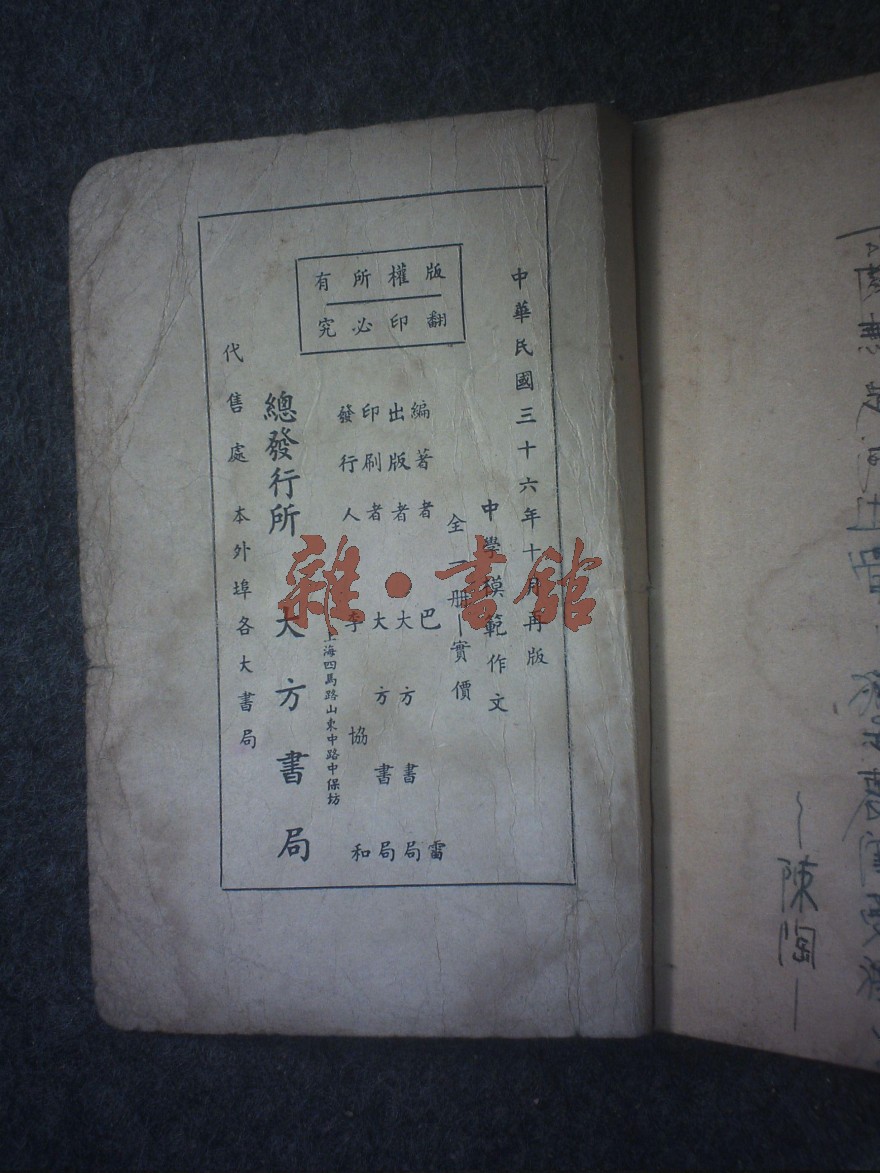 版權所有
翻印必究
中華民國三十六年十月再版
中學模範作文
全一冊｜實價
編著者 巴雷
出版者 大方書局
印刷者 大方書局
發行人 李協和
上海四馬路山東中路中保坊
總發行所 大方書局
代售處 本外埠各大書局
雜·書館
陳陶